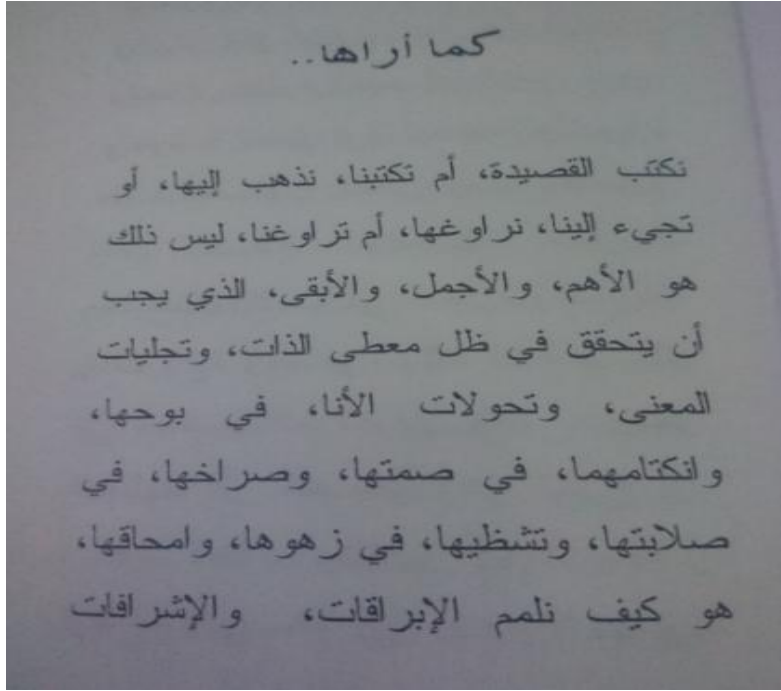 كما أراها..
نكتب القصيدة، أم تكتبنا، نذهب إليها، أو
تجيء إلينا، نراوغها، أم تراوغنا، ليس ذلك
هو الأهم، والأجمل، والأبقى، الذي يجب
أن يتحقق في ظل معطى الذات، وتجليات
المعنى، وتحولات الأنا، في بوحها،
وانكتامهما، في صمتها، وصراخها، في
صلابتها، وتشظيها، في زهوها، وامحاقها،
هو كيف نلمم الإبراقات، والإشراقات